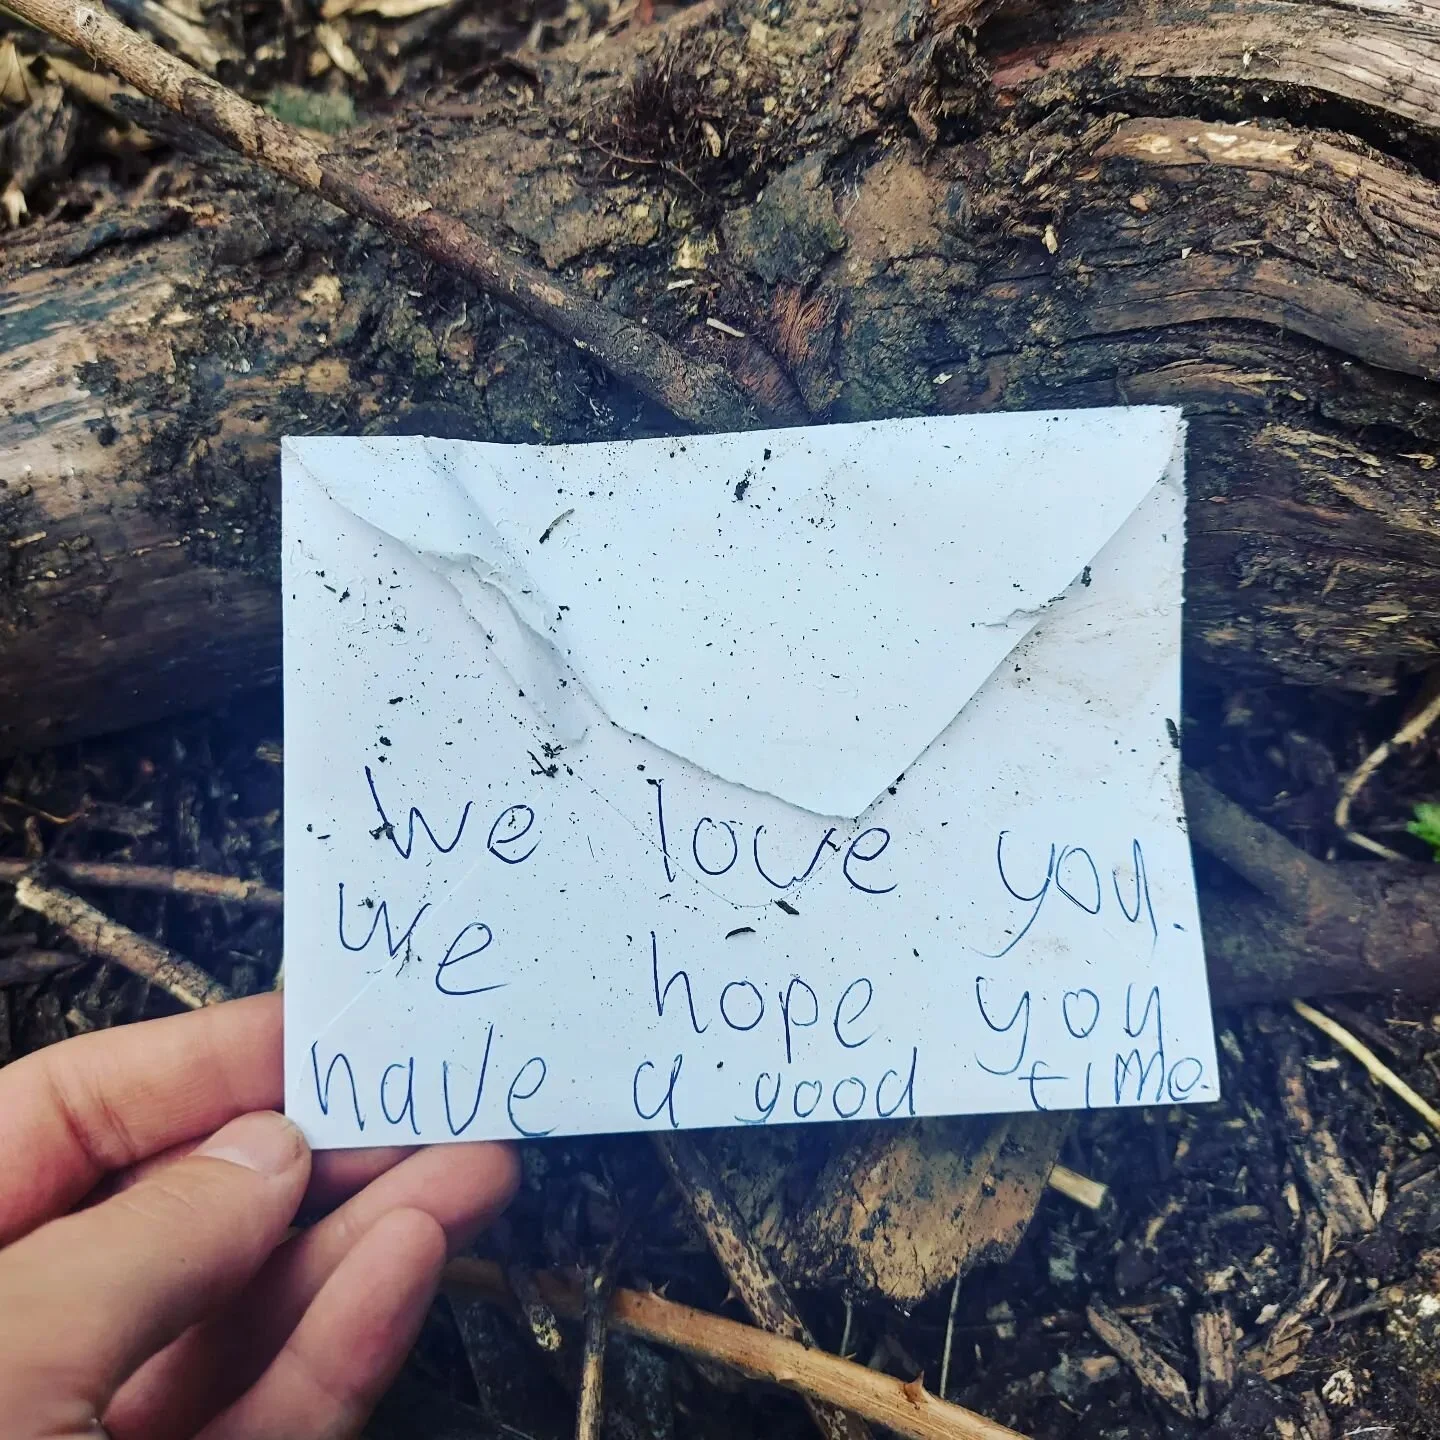 We love you.
We hope you
have a good time.